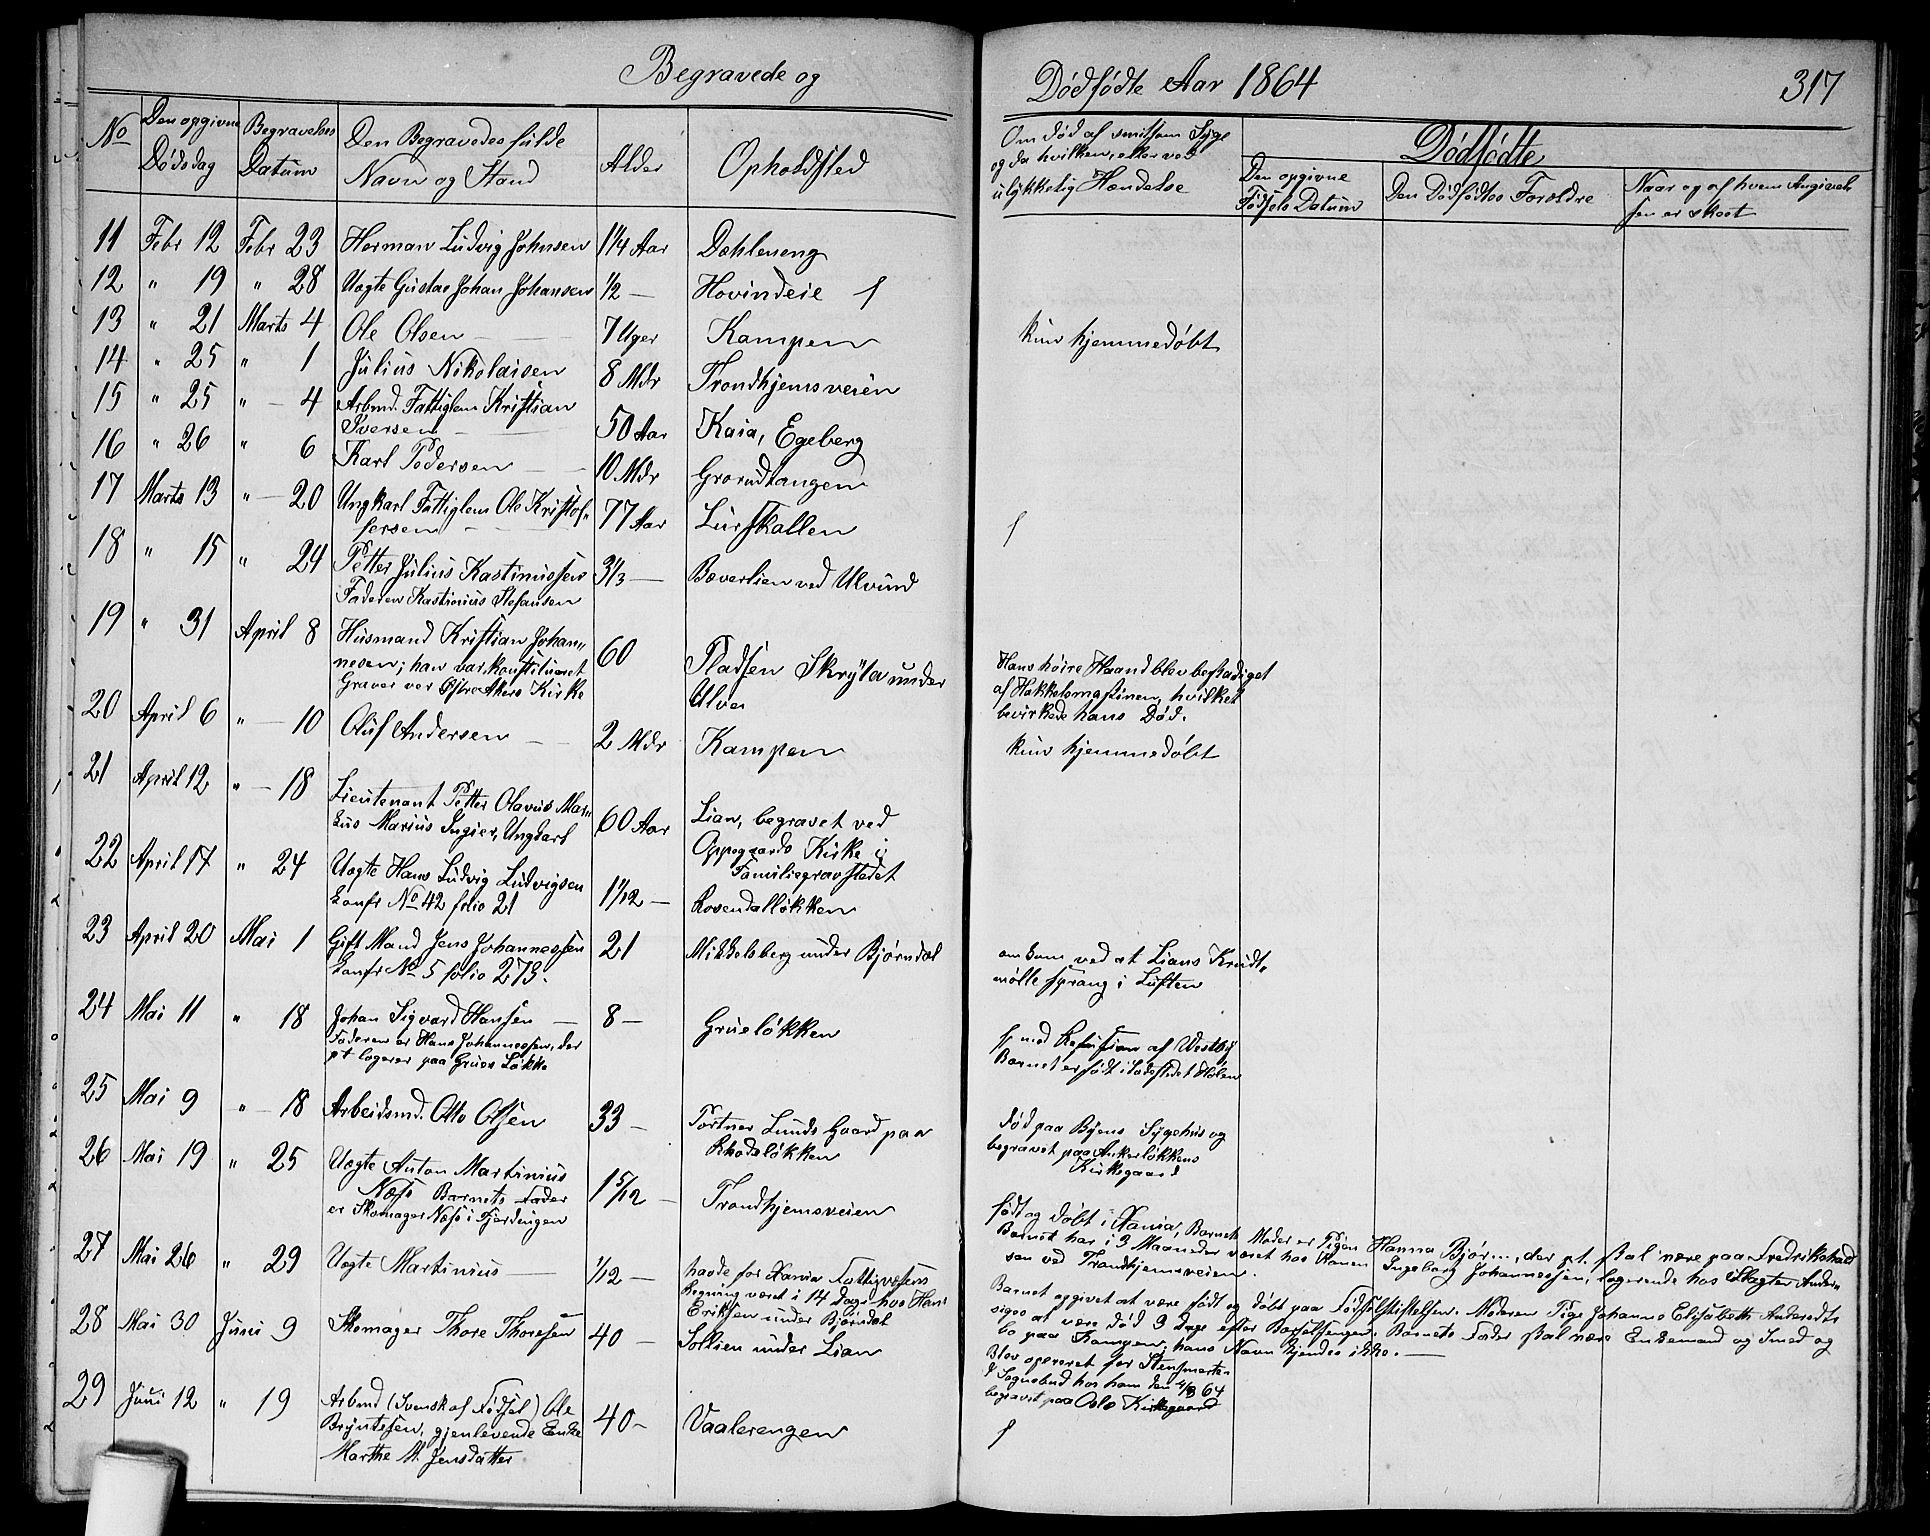 Begravede og
Dødfødte Aar 1864
317
No
Den opgivne Dødsdag
Begravelses Datum
Den Begravedes fulde Navn og Stand
Alder
Opholdsted
Om død af smitsom Syge
og da hvilken, eller ved
ulykkelig Hændelse
Dødfødte
Den opgivne Fødsels Datum
Den Dødfødtes Forældre
Naar og af hvem Angivel
sen er skeet
11 Febr 12 Febr 23 Herman Ludvig Johnsen 1 1/4 Aar Dahleneng
12 " 19 " 28 Uægte Gustav Johan Johansen 1/2 — Hovindeie
13 " 21 Marts 4 Ole Olsen 7 Uger Kampen kun hjemmedøbt
14 " 25 " 1 Julius Nikolaisen 8 Mdr Trondhjemsveien
15 " 25 " — 4 Arbmd. Fattiglem Kristian
Iversen — 50 Aar Kaia, Egeberg
16 " 26 " 6 Karl Pedersen — 10 Mdr Grorudtangen
17 Marts 13 " — 20 Ungkarl Fattiglem Ole Kristof„
fersen — 77 Aar Lurskallen
18 " 15 " 24 Petter Julius Kastinussen 3 1/3 — Bæverlien ved Ulvund
Faderen Kastinius Stefansen
19 " 31 April 8 Husmand Kristian Johan„
nesen; han var konstitueret
Graver ver Østre Akers Kirke
60 Pladsen Skrytavunder
Ulven
Hans høire Haand blev beskadiget
af Hakkelsmaskinen, hvilket
bevirkede hans Død.
20 April 6 " — 10 Oluf Andersen — 2 Mdr Kampen kun hjemmedøbt
21 April 12 " — 18 Lieutenant Petter Olavus Mar„
kus Marius Ingier, Ungkarl 60 Aar
Lian, begravet ved
Oppegaards Kirke i
Familiegravstedet
22 April 17 " 24 Uægte Hans Ludvig Ludvigsen
Konfr No 42 folio 21 1 1/12 — Rosendalløkken
23 April 20 Mai 1 Gift Mand Jens Johannessen
Konfr No 5 folio 273. 21 Mikkelsberg under Bjørndal
omkom ved at Lians Krudt„
mølle sprang i Luften
24 Mai 11 " 18 Johan Sigvard Hansen — 8 — Grueløkken
Faderen er Hans Johannessen, der
pt logerer paa Grues Løkke
med af Westby
Barnet er født i Ladestedet Hølen
25 Mai 9 " — 18 Arbeidsmd. Otto Olsen 33 — Portner Lunds Gaard paa
Rhodeløkken
Død paa Byens Sygehus og
begravet paa Ankerløkkens
Kirkegaard
26 Mai 19 " 25 Uægte Anton Martinius
Næss Barnets Fader
er Skomager Næss i Fjerdingen
1 5/12 — Trondhjemsveien
født og døbt i Xania, Barnets Moder er Pigen Hanna Bjør..., der pt. skal være paa Fredrikshald
Barnet har i 3 Maaneder været hos Konen Ingeborg Johannessen, logerende hos Slagter Ander„
sen ved Trondhjemsveien.
27 Mai 26 " 29 Uægte Martinius — 1/12 — havde for Xania Fattigvæsens
Regning været i 14 Dage hos Hans
Eriksen under Bjørndal
Barnet opgivet at være født og døbt paa Fødselsstiftelsen. Moderen Pige Johanne Elisabeth Andersdtr
siges at være død 3 Dage efter Barselsengen. Barnets Fader skal være Enkemand og Smed og
bo paa Kampen; hans Navn kjendes ikke. —
28 Mai 30 Juni 9 Skomager Thore Thoresen 40 — Sollien under Lian
Blev opereret for Stensmerte
Sognebud hos ham den 4/3 64
begravet paa Oslo Kirkegaard
29 Juni 12 " 19 Arbmd (Svensk af Fødsel) Ole
Bryntesen, gjenlevende Enke
Marthe M. Jensdatter
40 — Vaalerengen